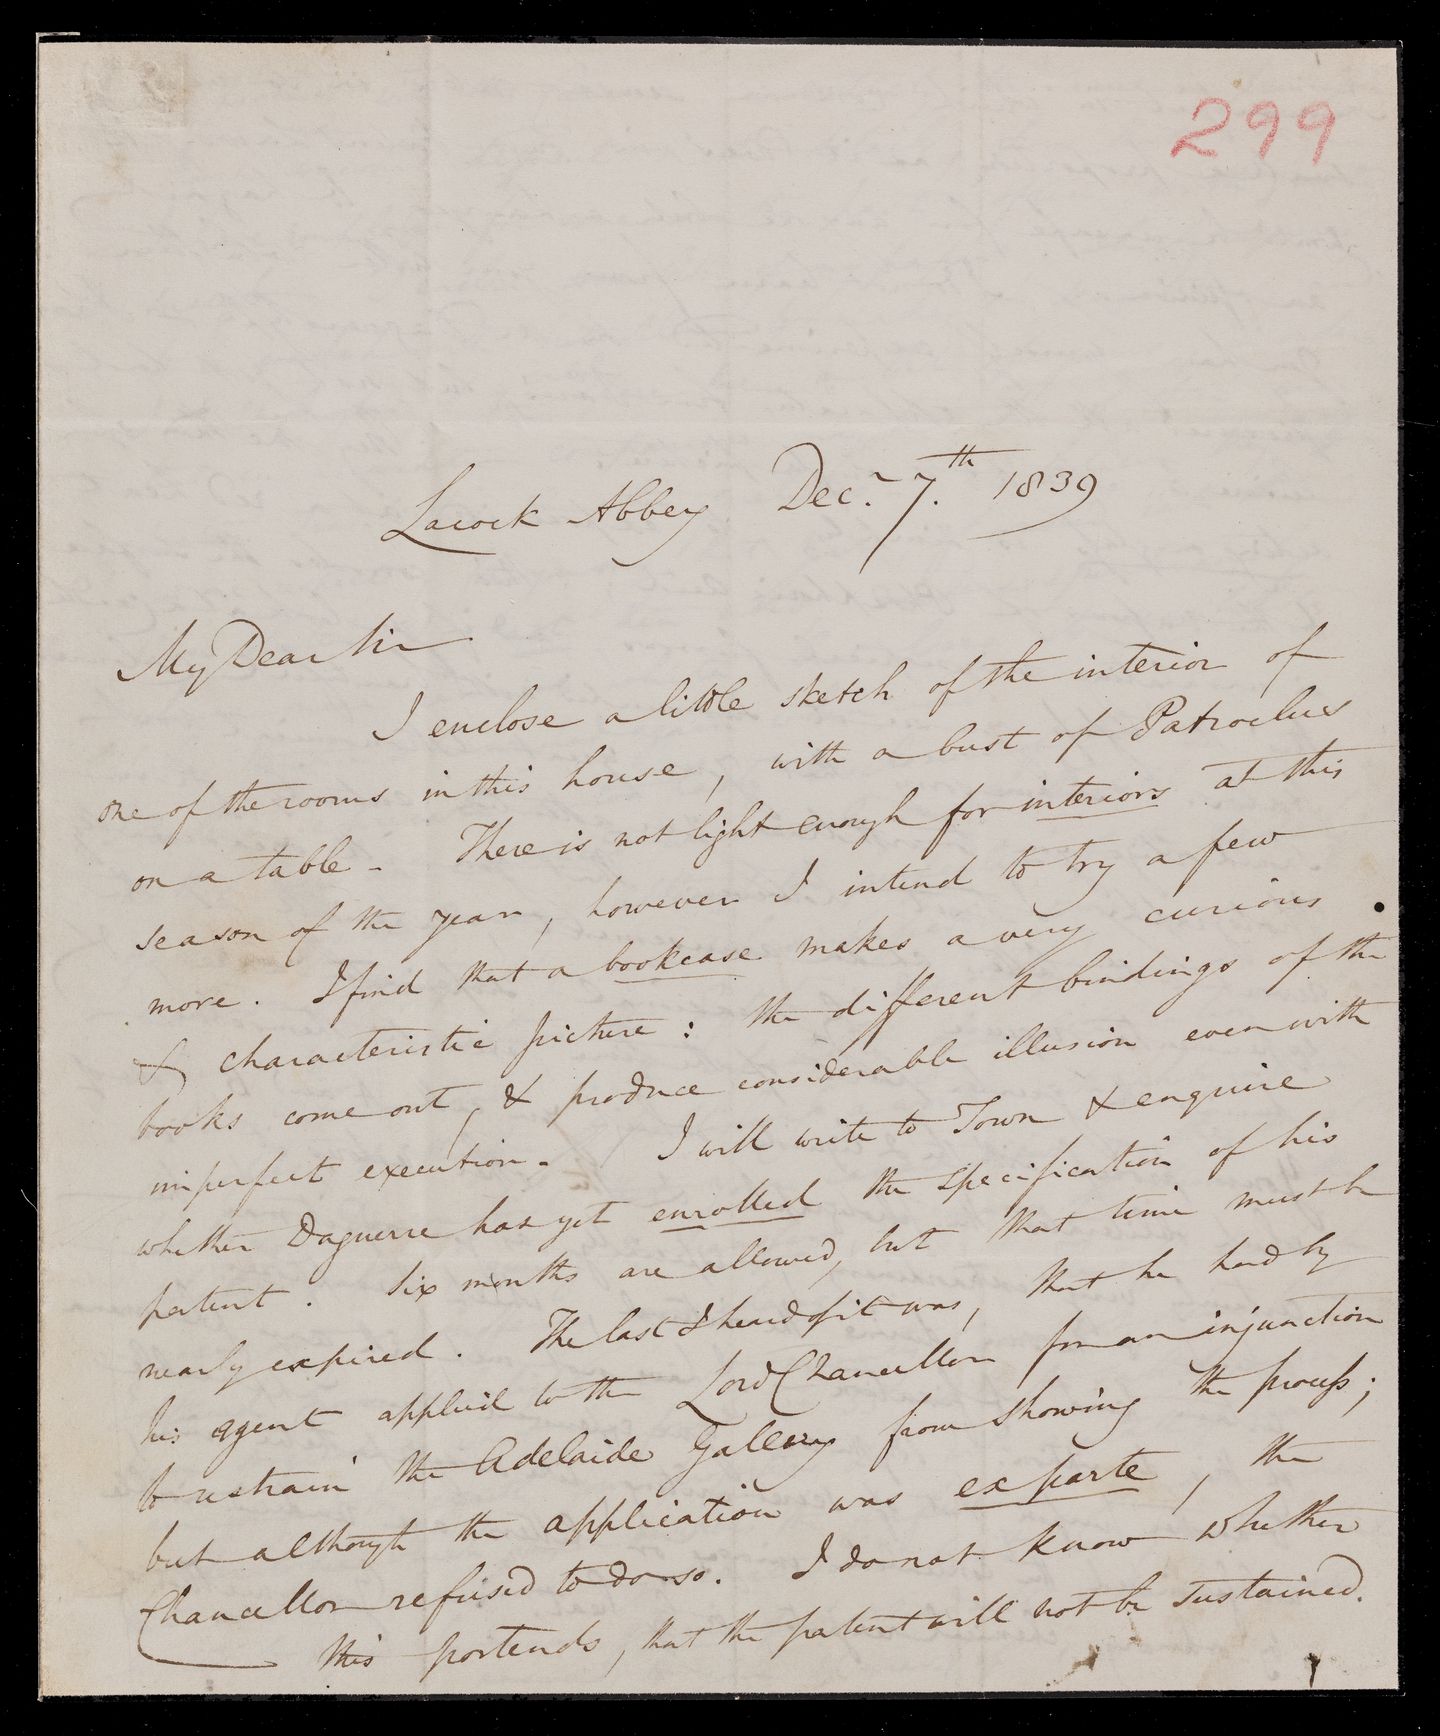 299
Lacock Abbey Decr. 7.th 1839
My Dear Sir
I enclose a little sketch of the interior of
one of the rooms in this house, with a bust of Patroclus
on a table. There is not light enough for interiors at this
season of the year, however I intend to try a few
more. I find that a bookcase makes a very curious
& characteristic picture: the different bindings of the
books come out, & produce considerable illusion even with
imperfect execution. I will write to Town & enquire
whether Daguerre has yet enrolled the specification of his
patent. Six months are allowed, but that time must be
nearly expired. The last I heard of it was, that he had by
his agent applied to the Lord Chancellor for an injunction
to restrain the Adelaide Gallery from showing the process;
but although the application was ex parte, the
Chancellor refused to do so. I do not know whether
this portends, that the patent will not be sustained.